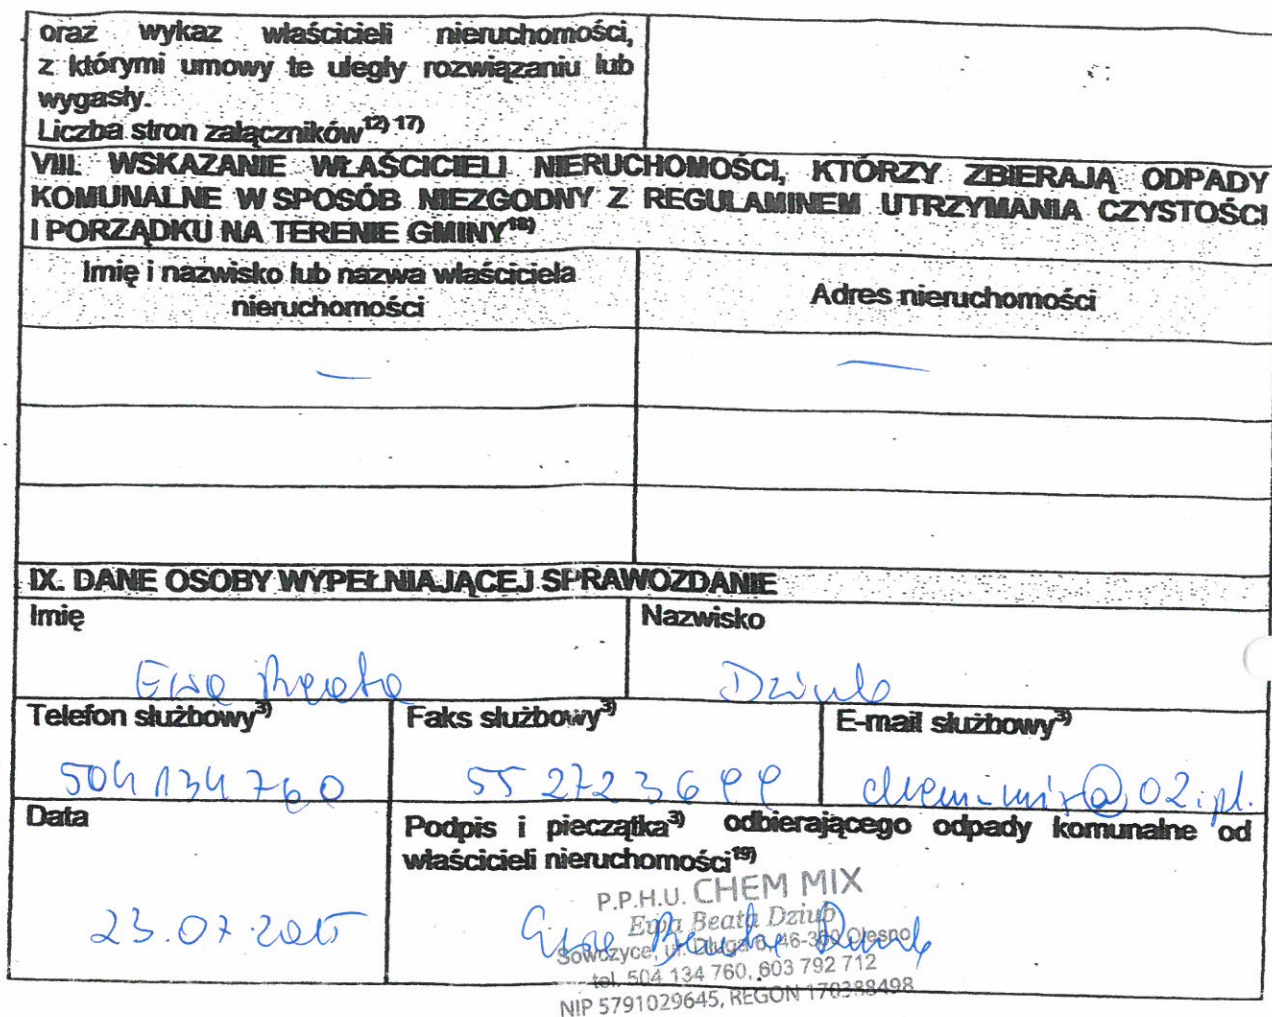 oraz wykaz właścicieli nieruchomości,
z którymi umowy te uległy rozwiązaniu lub
wygasły.
Liczba stron załączników12) 17)
VIII. WSKAZANIE WŁAŚCICIELI NIERUCHOMOŚCI, KTÓRZY ZBIERAJĄ ODPADY
KOMUNALNE W SPOSÓB NIEZGODNY Z REGULAMINEM UTRZYMANIA CZYSTOŚCI
I PORZĄDKU NA TERENIE GMINY18)
Imię i nazwisko lub nazwa właściciela
nieruchomości
Adres nieruchomości
—
—
IX. DANE OSOBY WYPEŁNIAJĄCEJ SPRAWOZDANIE
Imię
Nazwisko
Ewa Beata
Dziub
Telefon służbowy3)
Faks służbowy3)
E-mail służbowy3)
504 134 760
55 2723699
chem-mix@02.pl.
Data
Podpis i pieczątka3) odbierającego odpady komunalne od
właścicieli nieruchomości19)
23.07.2015
P.P.H.U. CHEM MIX
Ewa Beata Dziub
Ewa Beata Dziub
Sowczyce, ul. Długa 46-300 Olesno
tel. 504 134 760, 603 792 712
NIP 5791029645, REGON 170388498